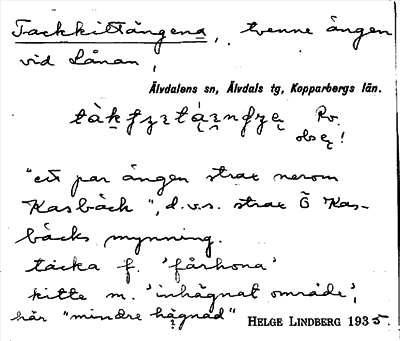 Tackkittängena, tvenne ängen
vid Lånan,
Älvdalens sn, Älvdals tg, Kopparbergs län.
Rv.
obs ę!
"ett par ängen strax nerom
Kasbäck", d.v.s. strax Ö Kas-
bäcks mynning.
täcka f. 'fårhona'
kitte m. 'inhägnat område',
här "mindre hägnad" HELGE LINDBERG 1935.